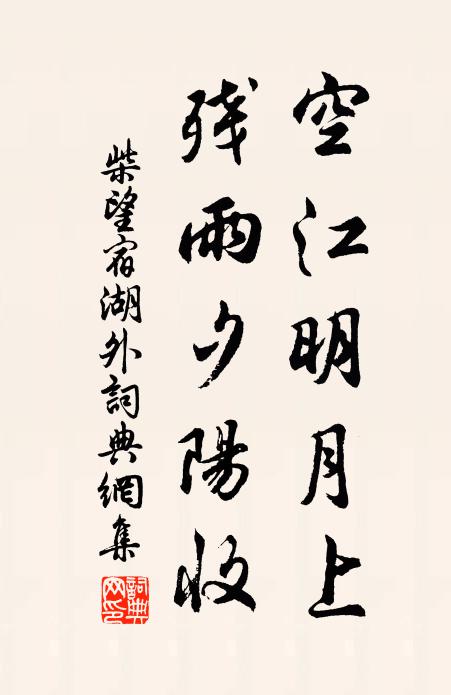 空江明月上
残雨夕陽收
柴望宿湖外詞典網集
詞典網印